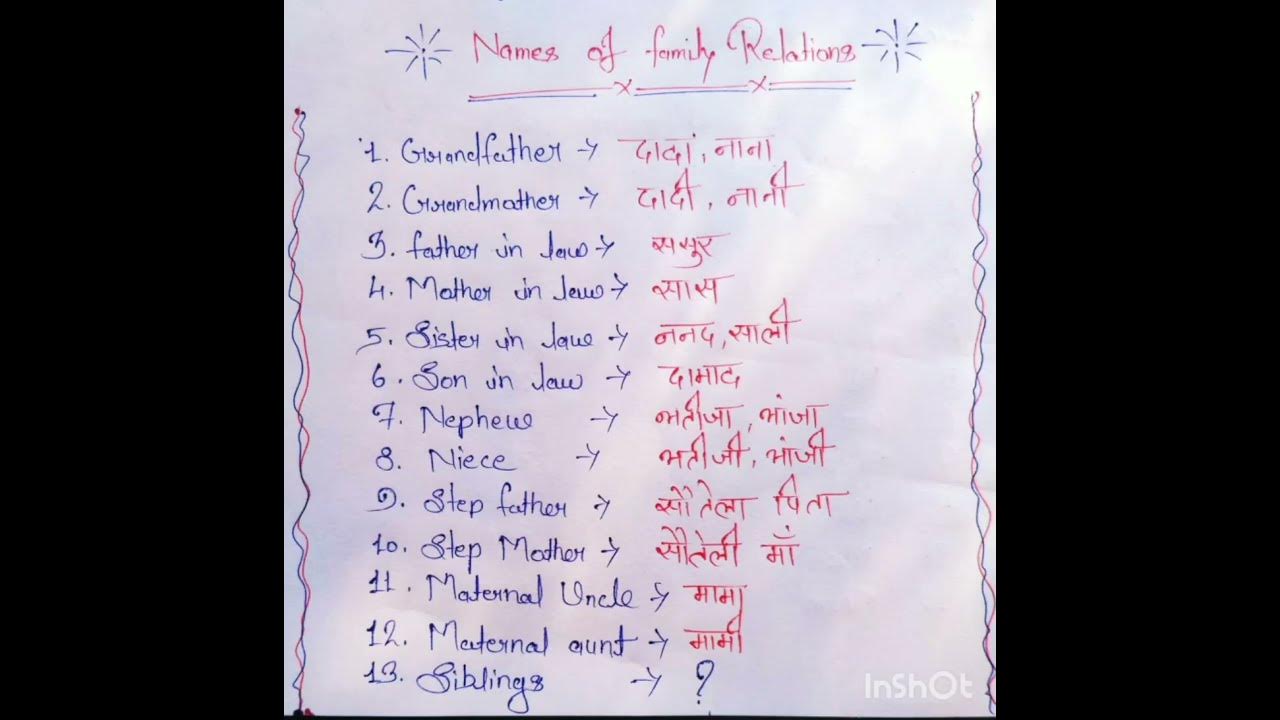 Names of family Relations
1. Grandfather → दादा, नाना
2. Grandmother → दादी, नानी
3. father in law → ससुर
4. Mother in law → सास
5. Sister in law → ननद, साली
6. Son in law → दामाद
7. Nephew → भतीजा, भांजा
8. Niece → भतीजी, भांजी
9. Step father → सौतेला पिता
10. Step Mother → सौतेली माँ
11. Maternal Uncle → मामा
12. Maternal aunt → मामी
13. Siblings → ?
InShOt